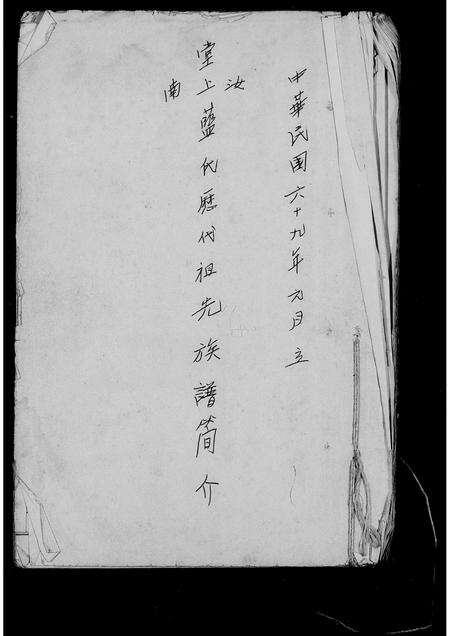 中華民国六十九年元月立
汝南
堂上藍氏歷代祖先族譜簡介